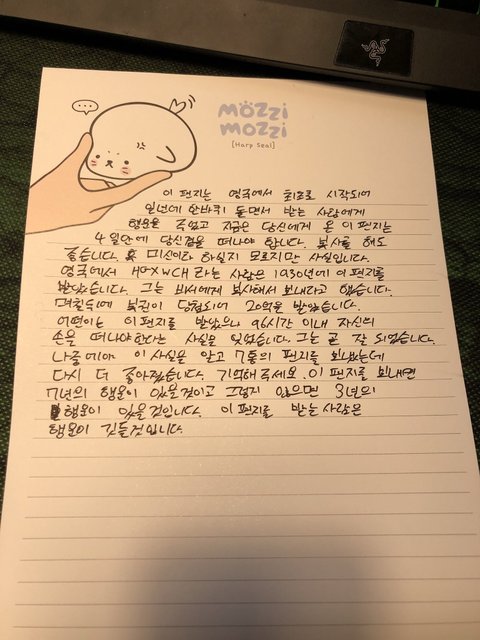 mözzi
mozzi
[Harp Seal]
이 편지는 영국에서 최초로 시작되어
일년에 한바퀴 돌면서 받는 사람에게
행운을 주었고 지금은 당신에게 온 이 편지는
4일안에 당신곁을 떠나야 합니다. 복사를 해도
좋습니다. 혹 미신이라 하실지 모르지만 사실입니다.
영국에서 HGXWCH 라는 사람은 1930년에 이 편지를
받았습니다. 그는 비서에게 복사해서 보내라고 했습니다.
며칠뒤에 복권이 당첨되어 20억을 받았습니다.
어떤이는 이 편지를 받았으나 96시간 이내 자신의
손을 떠나야한다는 사실을 잊었습니다. 그는 곧
나중에야 이 사실을 알고 7통의 편지를 보냈는데
다시 더 좋아졌습니다. 기억해주세요. 이 편지를 보내면
7년의 행운이 있을것이고 그렇지 않으면 3년의
행운이 있을것입니다. 이 편지를 받는사람은
행운이 깃들것입니다.